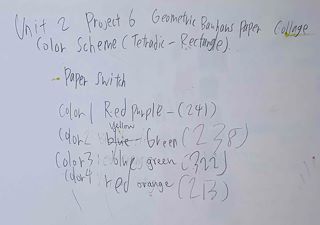 Unit 2 Project 6 Geometric Bauhaus Paper Collage
Color Scheme (Tetradic - Rectangle)
- Paper Switch
Color 1 Red purple - (241)
yellow
Color 2 blue - Green (238)
Color 3: blue green (322)
Color 4: red orange (213)